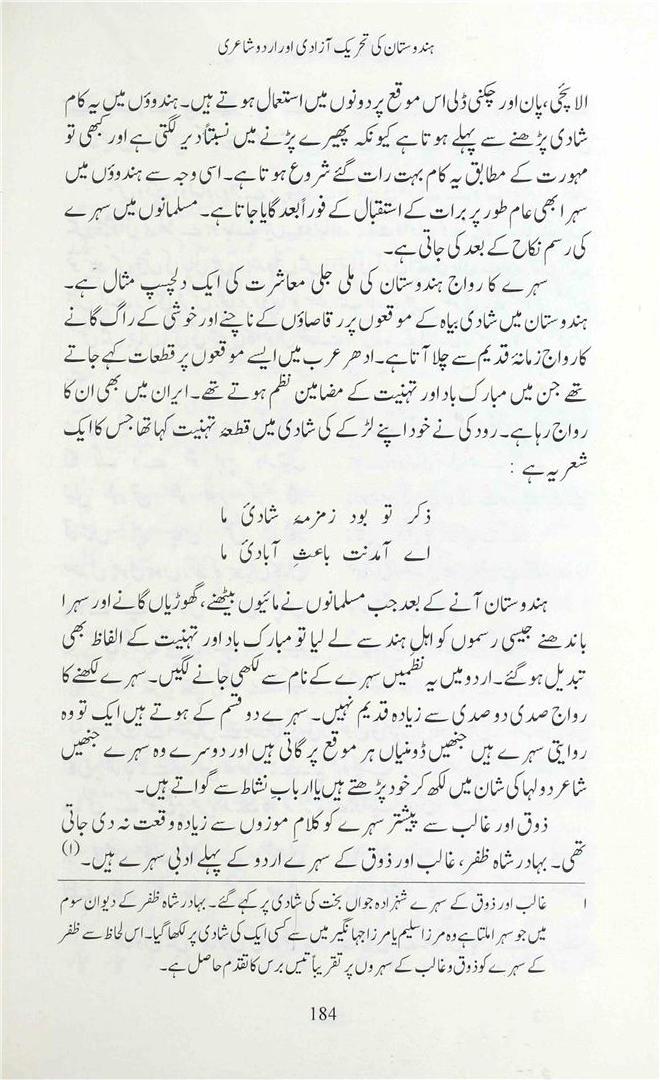 ہندوستان کی تحریک آزادی اور اردو شاعری
الائچی، پان اور چکنی ڈلی اس موقع پر دونوں میں استعمال ہوتے ہیں۔ ہندوؤں میں یہ کام
شادی پڑھنے سے پہلے ہوتا ہے کیونکہ پھیرے پڑنے میں نسبتاً دیر لگتی ہے اور کبھی تو
مہورت کے مطابق یہ کام بہت رات گئے شروع ہوتا ہے۔ اسی وجہ سے ہندوؤں میں
سہرا بھی عام طور پر برات کے استقبال کے فوراً بعد گایا جاتا ہے۔ مسلمانوں میں سہرے
کی رسم نکاح کے بعد کی جاتی ہے۔
سہرے کا رواج ہندوستان کی ملی جلی معاشرت کی ایک دلچسپ مثال ہے۔
ہندوستان میں شادی بیاہ کے موقعوں پر رقاصاؤں کے ناچنے اور خوشی کے راگ گانے
کا رواج زمانۂ قدیم سے چلا آتا ہے۔ ادھر عرب میں ایسے موقعوں پر قطعات کہے جاتے
تھے جن میں مبارک باد اور تہنیت کے مضامین نظم ہوتے تھے۔ ایران میں بھی ان کا
رواج رہا ہے۔ رودکی نے خود اپنے لڑکے کی شادی میں قطعۂ تہنیت کہا تھا جس کا ایک
شعر یہ ہے :
ذکر تو بود زمزمۂ شادیٔ ما
اے آمدنت باعثِ آبادیٔ ما
ہندوستان آنے کے بعد جب مسلمانوں نے مائیوں بیٹھنے، گھوڑیاں گانے اور سہرا
باندھنے جیسی رسموں کو اہلِ ہند سے لے لیا تو مبارک باد اور تہنیت کے الفاظ بھی
تبدیل ہو گئے۔ اردو میں یہ نظمیں سہرے کے نام سے لکھی جانے لگیں۔ سہرے لکھنے کا
رواج صدی دو صدی سے زیادہ قدیم نہیں۔ سہرے دو قسم کے ہوتے ہیں ایک تو وہ
روایتی سہرے ہیں جنھیں ڈومنیاں ہر موقع پر گاتی ہیں اور دوسرے وہ سہرے جنھیں
شاعر دولہا کی شان میں لکھ کر خود پڑھتے ہیں یا اربابِ نشاط سے گواتے ہیں۔
ذوق اور غالب سے پیشتر سہرے کو کلامِ موزوں سے زیادہ وقعت نہ دی جاتی
تھی۔ بہادر شاہ ظفر، غالب اور ذوق کے سہرے اردو کے پہلے ادبی سہرے ہیں۔(۱)
۱ غالب اور ذوق کے سہرے شہزادہ جواں بخت کی شادی پر کہے گئے۔ بہادر شاہ ظفر کے دیوان سوم
میں جو سہرا ملتا ہے وہ مرزا سلیم یا مرزا جہانگیر میں سے کسی ایک کی شادی پر لکھا گیا۔ اس لحاظ سے ظفر
کے سہرے کو ذوق و غالب کے سہروں پر تقریباً تیس برس کا تقدم حاصل ہے۔
184